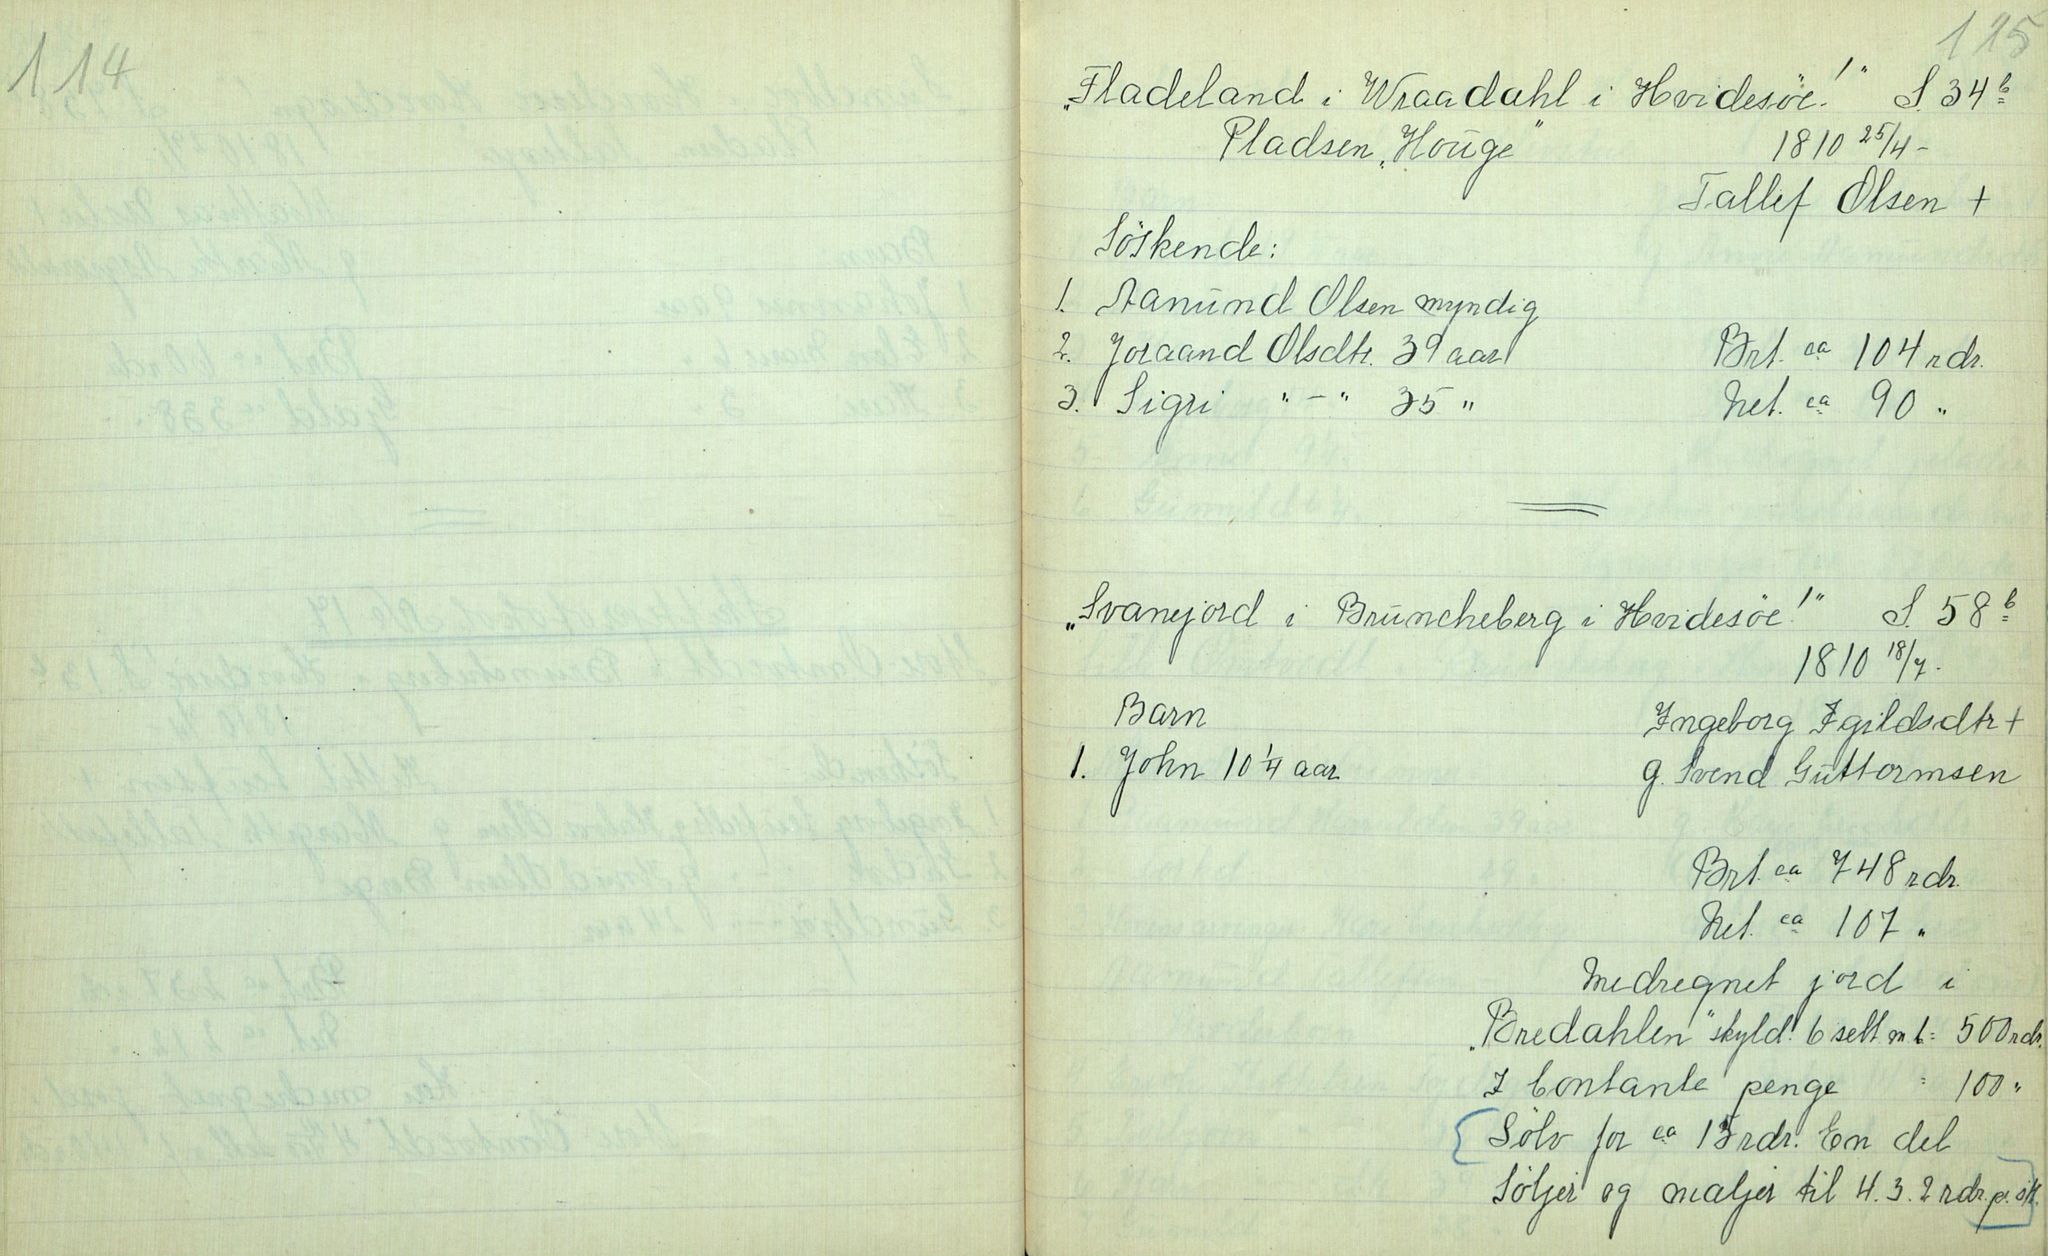 114
115
„Fladeland i Wraadahl i Hvidesöe!" S. 34 b
Pladsen „Houge" 1810 25/4 -
Tallef Olsen +
Söskende:
1. Aanund Olsen myndig
2. Joraand Olsdtr. 39 aar Brt. ca 104 rdr.
3. Sigri " - " 35 " Net. ca 90 "
„Svanejord i Bruncheberg i Hvidesöe!" S. 58 b
1810 18/7.
Barn Ingeborg Egildsdtr +
1. John 10 1/4 aar g. Svend Guttormsen
Brt. ca 748 rdr.
Net. ca 107 "
Medregnet jord i
„Bredahlen" skyld. 6 sett. m. l = 500 rdr.
I Contante penge = 100 "
Sölv for ca 13 rdr. En del
Söljer og maljer til 4. 3. 2 rdr. p. stk.